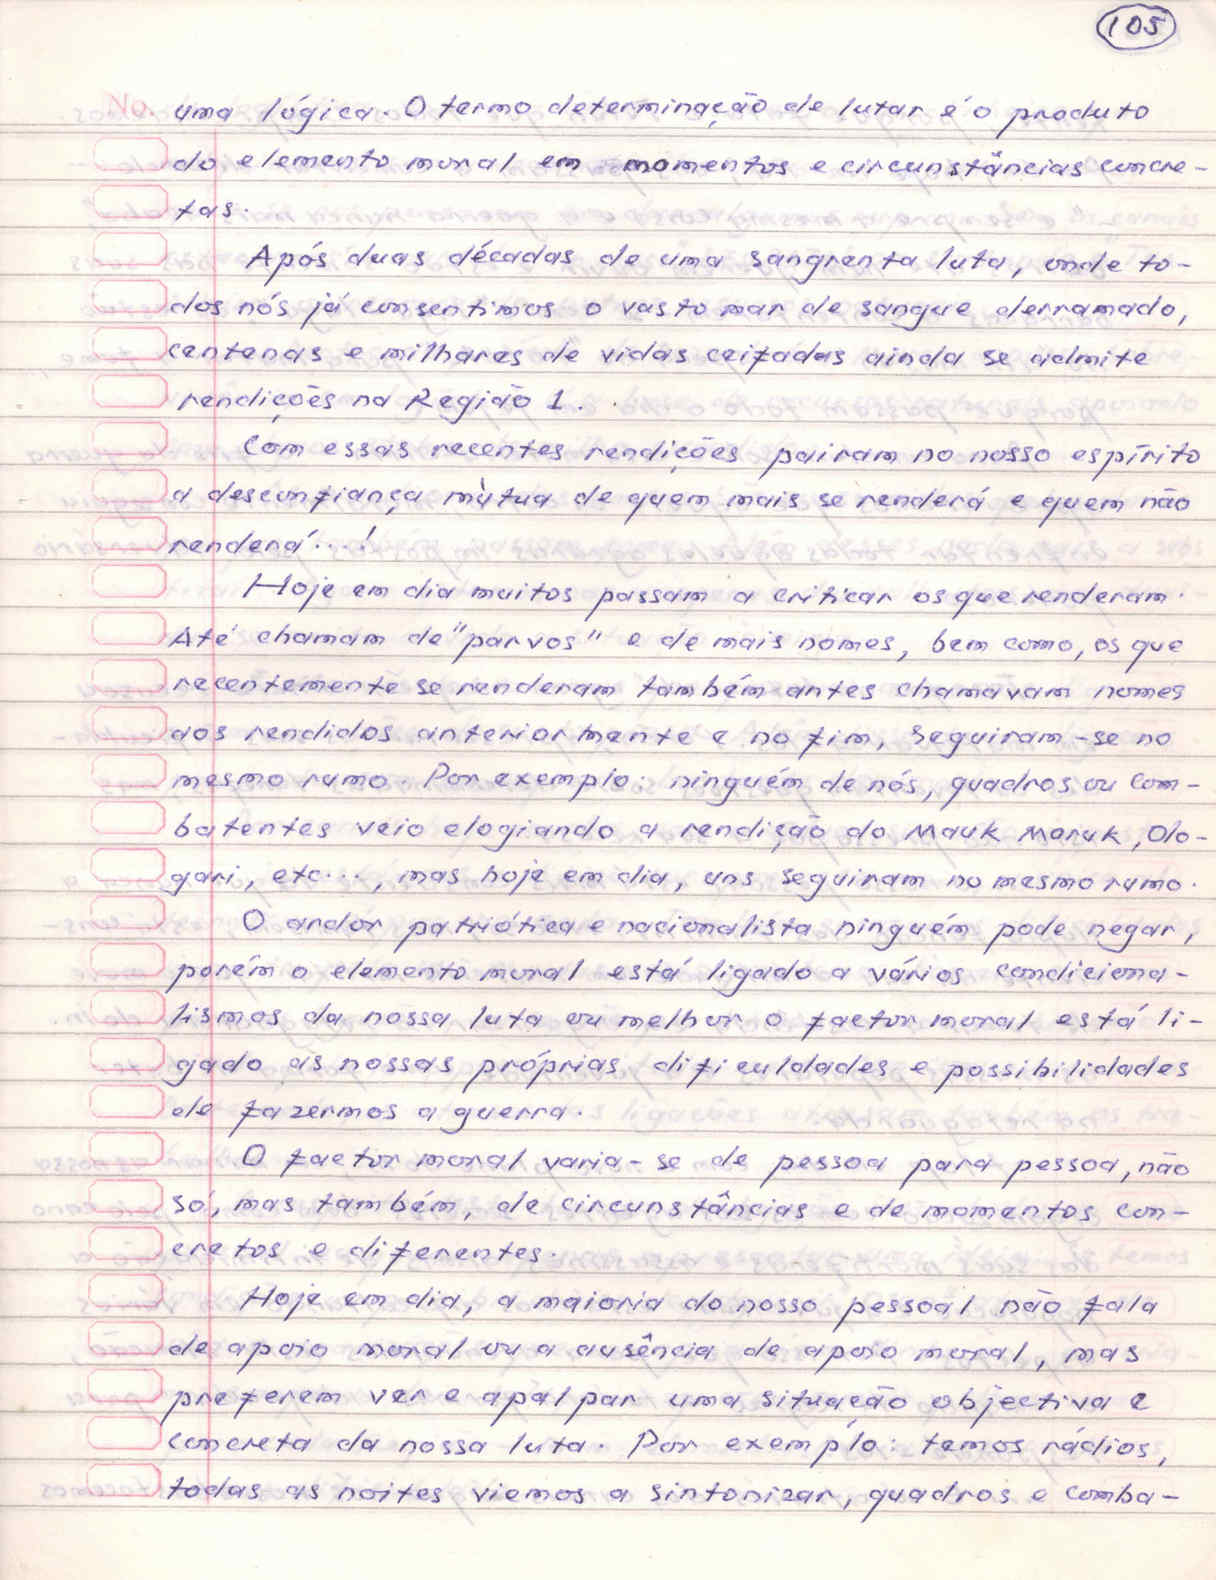 105
No. uma lógica. O termo determinação de lutar é o produto
do elemento moral em momentos e circunstâncias concre-
tas.
Após duas décadas de uma sangrenta luta, onde to-
dos nós já consentimos o vasto mar de sangue derramado,
centenas e milhares de vidas ceifadas ainda se admite
rendições na Região 1.
Com essas recentes rendições pairam no nosso espírito
a desconfiança mùtua de quem mais se renderá e quem não
renderá....!
Hoje em dia muitos passam a criticar os que renderam.
Até chamam de "parvos" e de mais nomes, bem como, os que
recentemente se renderam também antes chamavam nomes
aos rendidos anteriormente e no fim, seguiram-se no
mesmo rumo. Por exemplo: ninguém de nós, quadros ou com-
batentes veio elogiando a rendição do Mauk Moruk, Olo-
gari, etc..., mas hoje em dia, uns seguiram no mesmo rumo.
O ardor patriótica e nacionalista ninguém pode negar,
porém o elemento moral está ligado a vários condiciona-
lismos da nossa luta ou melhor o factor moral está li-
gado as nossas próprias dificuldades e possibilidades
de fazermos a guerra.
O factor moral varia-se de pessoa para pessoa, não
só, mas também, de circunstâncias e de momentos con-
cretos e diferentes.
Hoje em dia, a maioria do nosso pessoal não fala
de apoio moral ou a ausência de apoio moral, mas
preferem ver e apalpar uma situação objectiva e
concreta da nossa luta. Por exemplo: temos rádios,
todas as noites viemos a sintonizar, quadros e comba-